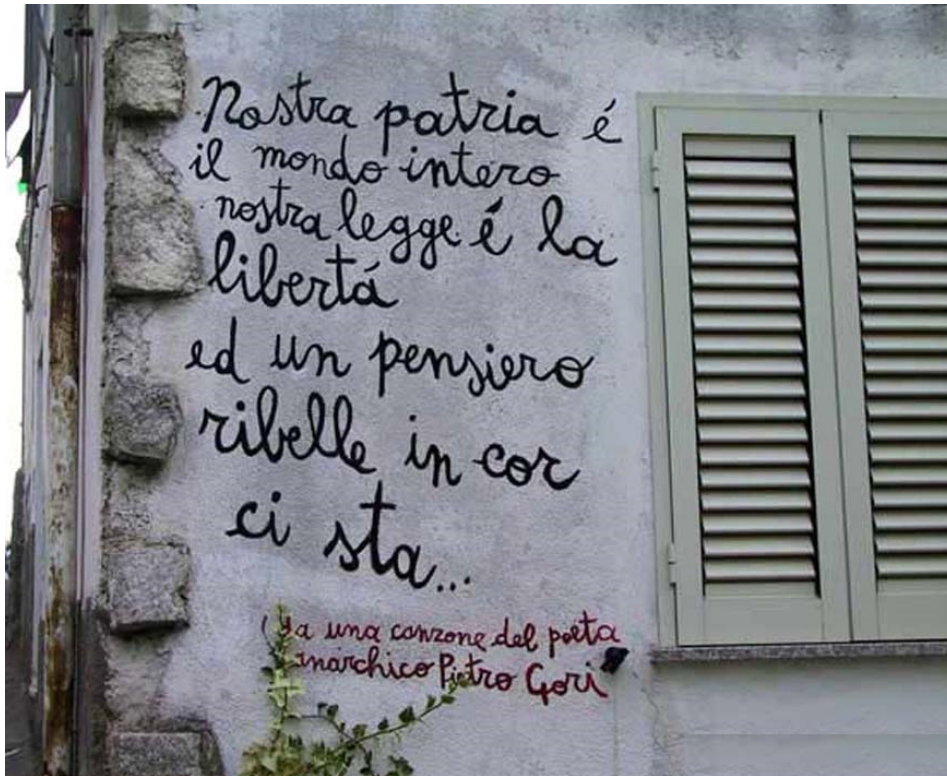 Nostra patria é
il mondo intero
nostra legge é la
libertá
ed un pensiero
ribelle in cor
ci sta...
da una canzone del poeta
anarchico Pietro Gori